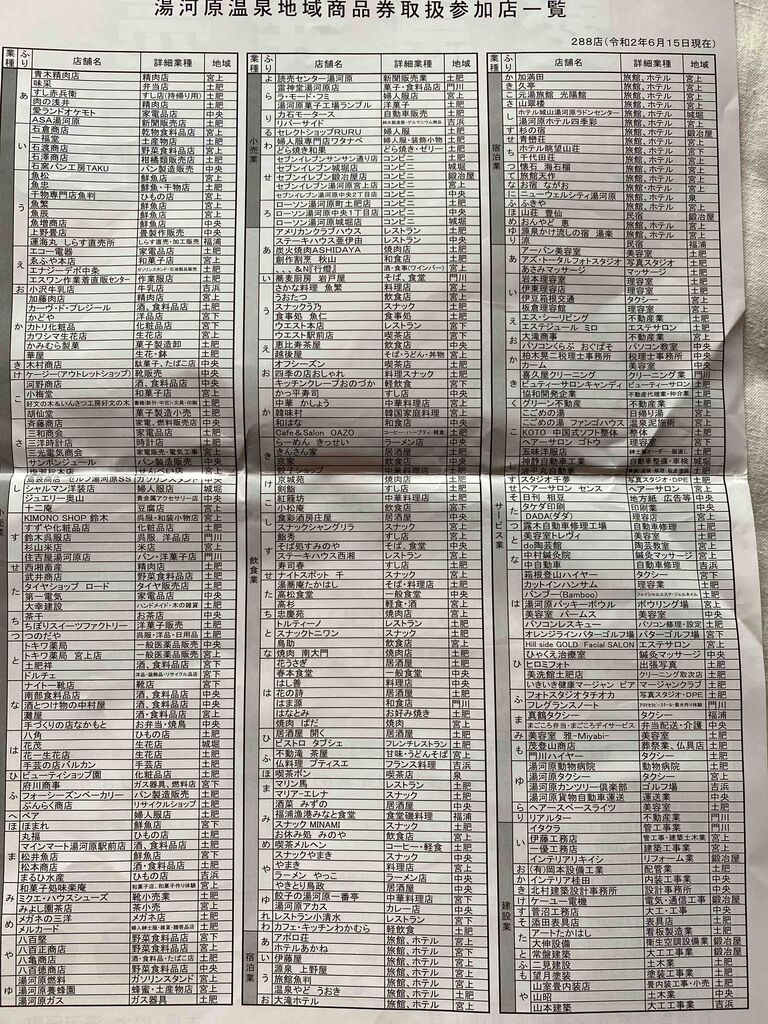 湯河原温泉地域商品券取扱参加店一覧
288店(令和2年6月15日現在)
業種 ふり 店舗名 詳細業種 地域
小売業
あ
青木精肉店 精肉店 宮上
味采 弁当店 土肥
すし赤兵衛 すし店(持帰り用) 土肥
肉の浅井 精肉店 土肥
愛ランドオケモト 家電品店 中央
ASA湯河原 新聞販売店 土肥
い
石倉商店 乾物食料品店 宮上
一福堂 土産物店 土肥
石渡商店 野菜食料品店 宮上
石澤商店 柑橘類販売店 土肥
石窯パン工房TAKU パン製造販売 中央
う
魚松 鮮魚店 宮上
魚忠 鮮魚・干物店 土肥
干物専門店魚判 ひもの店 宮上
魚繁 鮮魚店 宮上
魚辰 鮮魚店 宮上
魚増商店 鮮魚店 中央
上野畳店 畳製作販売 中央
運海丸 しらす直売所 しらす造・加工販売 福浦
え
エコー電器 家電品店 中央
ゑふや本店 和菓子店 宮上
エナジーデポ中条 ガソリンスタンド・石油製品販売 土肥
エスワン作業着直販センター 作業服店 土肥
お
小沢牛乳店 牛乳店 吉浜
か
加藤精肉店 精肉店 宮上
カーヴ・ド・プレジール 酒、食料品店 土肥
かどや 洋品店 宮下
カトリ化粧品 化粧品店 宮下
カワシマ生花店 生花店 土肥
かみむら製菓 菓子製造卸 土肥
華屋 生花・鉢 土肥
き
木村商店 駄菓子、たばこ店 中央
け
ケージー(アウトレットショップ) 靴販売 中央
こ
河野商店 酒、食料品店 中央
小梅堂 和菓子店 宮上
胡仙堂 菓子製造小売 土肥
さ
斉藤商店 家電、燃料販売店 中央
三和商会 家電品店 土肥
三洋時計店 時計店 土肥
三光電気商会 家電販売・電気工事 宮上
サンボンジュール パン製造販売 中央
し
シャルマン洋装店 婦人服店 城堀
ジュエリー奥山 貴金属アクセサリー店 中央
十二庵 豆腐店 宮上
KIMONO SHOP 鈴木 呉服・和装小物店 宮上
す
すずや化粧品店 化粧品店 土肥
鈴木呉服店 呉服、洋品店 門川
杉山米店 米店 宮上
住吉屋湯河原店 パン・洋菓子店 門川
せ
西湘畜産 精肉店 土肥
た
武井商店 野菜食料品店 土肥
タイヤショップ ロード タイヤ販売店 土肥
第一電気 家電品店 中央
大幸建設 ハンドメイド・木の雑貨 土肥
ち
茶千 お茶店 中央
ちぼりスイーツファクトリー 洋菓子販売 土肥
つ
つのだや 呉服・洋品・日用品 土肥
と
トキワ薬局 一般医薬販売店 中央
トキワ薬局 宮上店 一般医薬品販売店 宮上
土肥祥 酒、食料品店 宮下
ドルチェ 洋品・装飾品・リサイクル品店 宮下
な
ナイトー靴店 靴店 宮下
南部食料品店 食料品店 中央
酒とつけ物の中村屋 酒、食料品店 宮上
灘屋 酒・食料品店 宮上
手づくりの店なかもと お弁当・焼鳥 中央
は
八角 ひもの店 土肥
花茂 生花店 城堀
花一生花店 生花店 土肥
手芸の店パルカン 手芸店 土肥
ひ
ビューティショップ園 化粧品店 中央
ふ
府川商事 ガス器具、燃料店 宮下
フォーシーズンベーカリー パン製造販売 土肥
ぶんらく商店 リサイクルショップ 土肥
へ
ペア 婦人服店 土肥
ほ
ほまれ 鮮魚店 宮下
ま
丸福 ひもの店 土肥
マインマート湯河原駅前店 酒、食料品店 土肥
松井魚店 鮮魚店 宮下
松本商店 酒・食料品店 土肥
まるひ水産 ひもの店 吉浜
み
和菓子処味楽庵 和菓子店、和菓子作り体験 宮上
ミクエ・ハウスシューズ 靴小売業 土肥
みよし園茶店 茶小売 宮上
め
メガネの三洋 メガネ店 土肥
メルカード 土肥
や
八百堅 野菜食料品店 宮下
八百正商店 野菜食料品店 宮上
八亀商店 酒・食料品店 土肥
八百徳商店 野菜食料品店 中央
ゆ
湯河原燃料 ガソリンスタンド 宮上
湯河原養蜂園 蜂蜜・土産物店 宮上
湯河原ガス ガス器具 土肥
業種 ふり 店舗名 詳細業種 地域
小売業
よ
読売センター湯河原 新聞販売業 土肥
ら
雷神堂湯河原店 菓子・食料品店 門川
ラ・モード・フミ 婦人服店 宮下
湯河原菓子工場ランブル 洋菓子 土肥
り
力石モータース 自動車販売 土肥
リバーサイド 吉浜
る
セレクトショップRURU 婦人服 土肥
わ
婦人服専門店ワタナベ 婦人服・装飾小物 土肥
どら焼き和果 どら焼き・ゼリー 土肥
せ
セブンイレブンサンサン通り店 コンビニ 土肥
セブンイレブン城堀店 コンビニ 城堀
セブンイレブン鍛冶屋店 コンビニ 鍛冶屋
セブンイレブン湯河原宮上店 コンビニ 宮上
セブンイレブン湯河原中央2丁目店 コンビニ 中央
ろ
ローソン湯河原町土肥店 コンビニ 土肥
ローソン湯河原中央1丁目店 コンビニ 中央
ローソン湯河原城堀店 コンビニ 城堀
飲食業
あ
アメリカンクラブハウス レストラン 土肥
ステーキハウス亜伊由 レストラン 中央
炭火焼肉ASHIDAYA 焼肉店 土肥
創作割烹 秋山 和食店 宮上
、、、&N「行燈」 酒・食事(ワインバー) 宮上
い
蕎麦厨房 岩戸屋 そば、食堂 門川
う
さかな料理 魚繁 料理店 宮上
うおたつ 飲食店 宮上
スナックう乃 スナック 土肥
食事処 魚仁 食事処 土肥
ウエスト本店 レストラン 宮下
え
恵比寿茶屋 飲食店 中央
越後屋 そば・うどん・丼物 宮上
お
オフシーズン 喫茶店 中央
四季の店おしゃれ 料理スナック 土肥
キッチンクレープおのづか 軽飲食 宮下
か
かっ平寿司 すし店 中央
中華 かしょう 中華料理店 宮上
韓味村 韓国家庭料理 宮上
和はな 和食店 中央
Cafe&Salon OAZO コーヒー・ハーブティ・軽食 土肥
き
らーめん きっせい ラーメン店 中央
きんさん家 居酒屋 土肥
け
京城苑 焼肉店 土肥
剣鮨 すし店 土肥
こ
紅龍坊 中華料理店 土肥
小松庵 飲食店 宮下
し
食彩酒房庄屋 居酒屋 中央
スナックシャングリラ スナック 中央
す
鮨秀 すし店 中央
そば処すみのや そば、食堂 中央
ステーキハウス西湘 レストラン 門川
寿司春 すし店 土肥
せ
ナイトスポット 千 スナック 土肥
た
湯葱庵たかはし そば・料理店 土肥
高長食堂 一般食堂 中央
高杉 軽食・酒 宮上
ち
忠慶苑 焼肉店 土肥
と
トルティーノ レストラン 土肥
スナックトニワン スナック 土肥
鳥助 飲食店 宮上
な
焼肉 南大門 焼肉店 土肥
は
花うさぎ 居酒屋 土肥
春本食堂 一般食堂 中央
はし善 料理店 中央
はま源 和食店 門川
花の詩 居酒屋 土肥
はなとみ お好み焼き 土肥
焼肉 ぱだ 焼肉店 中央
ひ
居酒屋 開く 居酒屋 土肥
ビストロ タブシェ フレンチレストラン 土肥
ふ
不動滝 茶屋 甘味・うどんそば 宮上
仏料理 プティエス フランス料理 吉浜
ほ
喫茶ポン 喫茶店 泉
ま
マリン馬 レストラン 土肥
マリアーエレナ スナック 土肥
み
酒菜 みずの 居酒屋 中央
福浦漁港みなと食堂 食堂磯料理 福浦
スナックMINAMI スナック 土肥
お休み処 みのや 飲食店 宮上
め
喫茶メルヘン コーヒー・軽食 土肥
や
スナックやすまき スナック 中央
やまき 料理店 中央
ラーメン やっこ ラーメン店 中央
やきとり鳥政 居酒屋 中央
ゆ
餃子の湯河原一番亭 中華料理店 中央
湯河原アカス カレー店 中央
れ
レストラン小清水 レストラン 土肥
わ
カフェ・キッチンわかむら 軽飲食店 土肥
宿泊業
あ
アポロ荘 旅館、ホテル 宮下
ホテルあかね 旅館、ホテル 宮上
い
伊藤屋 旅館、ホテル 宮上
う
源泉 上野屋 旅館、ホテル 宮上
旅館魚判 旅館、ホテル 宮上
温泉やど うおき 旅館、ホテル 土肥
お
大滝ホテル 旅館、ホテル 宮上
業種 ふり 店舗名 詳細業種 地域
宿泊業
か
加満田 旅館、ホテル 宮上
き
久亭 旅館、ホテル 宮上
こ
元湯旅館 光陽館 旅館、ホテル 宮上
さ
山翠楼 旅館、ホテル 宮上
し
ホテル城山湯河原ラドンセンター 旅館、ホテル 城堀
湯河原ホテル四季彩 旅館、ホテル 土肥
す
杉の宿 旅館、ホテル 鍛冶屋
せ
青巒荘 旅館、ホテル 宮上
ち
ホテル眺望山荘 旅館、ホテル 宮下
千代田荘 旅館、ホテル 中央
つ
懐石 海石榴 旅館、ホテル 宮上
て
旅館天作 旅館、ホテル 宮上
な
お宿 ながお 旅館、ホテル 宮上
に
ニューウェルシティ湯河原 旅館、ホテル 泉
ふ
ふきや 旅館、ホテル 宮上
ほ
山荘 豊仙 民宿 鍛冶屋
お
おんやど 恵 旅館、ホテル 宮上
ゆ
源泉かけ流しの宿 湯楽 旅館、ホテル 宮上
り
涼 民宿 福浦
サービス業
あ
アーバン美容室 美容室 土肥
アズ・トータルフォトスタジオ 写真スタジオ 土肥
あさみマッサージ マッサージ 土肥
い
岩本理容室 理容室 土肥
伊東理容店 理容室 宮上
伊豆箱根交通 タクシー 宮下
板倉理容館 理容室 宮上
え
エス・シーリビング 不動産業 土肥
エステジュール ミロ エステサロン 土肥
お
大滝商事 不動産業 宮上
パソコンくらぶ おぐぼそ パソコン教室 中央
か
柏木晃二税理士事務所 税理士事務所 中央
カーム 美容室 中央
き
喜久屋クリーニング クリーニング業 門川
ビューティーサロンキャンディ ビューティーサロン 土肥
協和開発企業 不動産代理業・仲介業 土肥
く
グリーン不動産 不動産業 中央
こ
こごめの湯 日帰り湯 宮上
こごめの湯 ファンゴハウス 温泉泥施術 宮上
KOTO 中国式ソフト整体 整体 土肥
ヘアーサロン ゴトウ 理容室 宮下
五味洋服店 紳士服オーダー・服直し 土肥
し
神静自動車工業 自動車整備・車検 城堀
す
スタジオ千夢 写真スタジオ・DPE 土肥
せ
ヘアーサロン センス ヘアーサロン 宮上
そ
日刊 相豆 地方紙 広告等 中央
た
タケダ印刷 印刷業 中央
DADA(ダダ) 理容店 宮上
つ
露木自動車修理工場 自動車修理 土肥
と
美容室トレヴィ 美容室 土肥
do陶芸館 陶芸教室 宮上
な
中村鍼灸院 鍼灸マッサージ 宮上
中自動車 自動車修理 吉浜
は
箱根登山ハイヤー タクシー 宮下
カットインハンサム 理容業 土肥
バンブー(Bamboo) フェイシャルエステ・ジェルネイル 土肥
湯河原バッキーボウル ボウリング場 宮上
美容室 バームス 美容室 中央
パソコンレスキュー パソコン修理・設定 土肥
オレンジラインパターゴルフ場 パターゴルフ場 宮下
Hill side GOLD Facial SALON エステサロン 宮上
ひ
ひゃくえ治療室 鍼灸マッサージ 中央
ヒロミフォト 出張写真 土肥
美洗館土肥店 クリーニング取次店 土肥
いきいき健康マージャン ピア マージャンクラブ 土肥
ふ
フォトスタジオタチオカ 写真スタジオ・DPE 土肥
フレグランスノート 門川
ま
真鶴タクシー タクシー 福浦
まごころ弁当・まごころデイサービス 弁当配給・介護 中央
み
美容室 雅-Miyabi- 美容室 中央
も
茂登山商店 葬祭業、仏具店 土肥
門川ハイヤー タクシー 土肥
ゆ
湯河原動物病院 動物病院 土肥
湯河原タクシー タクシー 宮上
湯河原カンツリー倶楽部 ゴルフ場 吉浜
湯河原貨物自動車運送 運送業 中央
ら
ヘアースペースライツ 美容室 土肥
り
リアルター 不動産業 門川
建設業
い
イタクラ 管工事業 門川
伊藤工務店 管工事・建築土木業 宮上
一優工務店 建築業 宮上
インテリアリキイシ リフォーム業 鍛冶屋
お
(有)岡本設備工業 配管業 土肥
か
インテリア柿田 内装工事業 中央
き
北村建築設計事務所 設計事務所 中央
け
ケーユー電機 電気・通信工事 鍛冶屋
す
菅沼工務店 大工・工事 中央
そ
添田表具店 表具店 土肥
た
アートたかはし 看板製造業 土肥
大伸設備 衛生空調設備業 鍛冶屋
と
常盤建築 大工工事業 鍛冶屋
ふ
二見建設 土木業 土肥
も
望月塗装 塗装工事業 土肥
や
山室畳内装店 畳内装工事・小売 土肥
山昭 土木業 中央
山本建築 大工工事業 吉浜